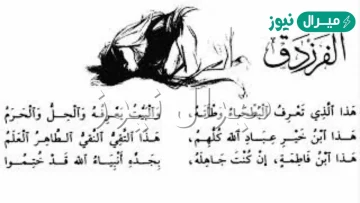 ميرال نيوز
الفرزدق
هَذا الَّذي تَعْرِفُ الْبَطْحَاءُ وَطْأَتَهُ، وَالْبَيْتُ يَعْرِفُهُ وَالْحِلُّ وَالْحَرَمُ
هَذا ابْنُ خَيْرِ عِبَادِ اللهِ كُلِّهِمُ، هَذا التَّقِيُّ النَّقِيُّ الطَّاهِرُ الْعَلَمُ
هَذا ابْنُ فَاطِمَةٍ، إِنْ كُنْتَ جَاهِلَهُ، بِجَدِّهِ أَنْبِيَاءُ اللهِ قَدْ خُتِمُوا